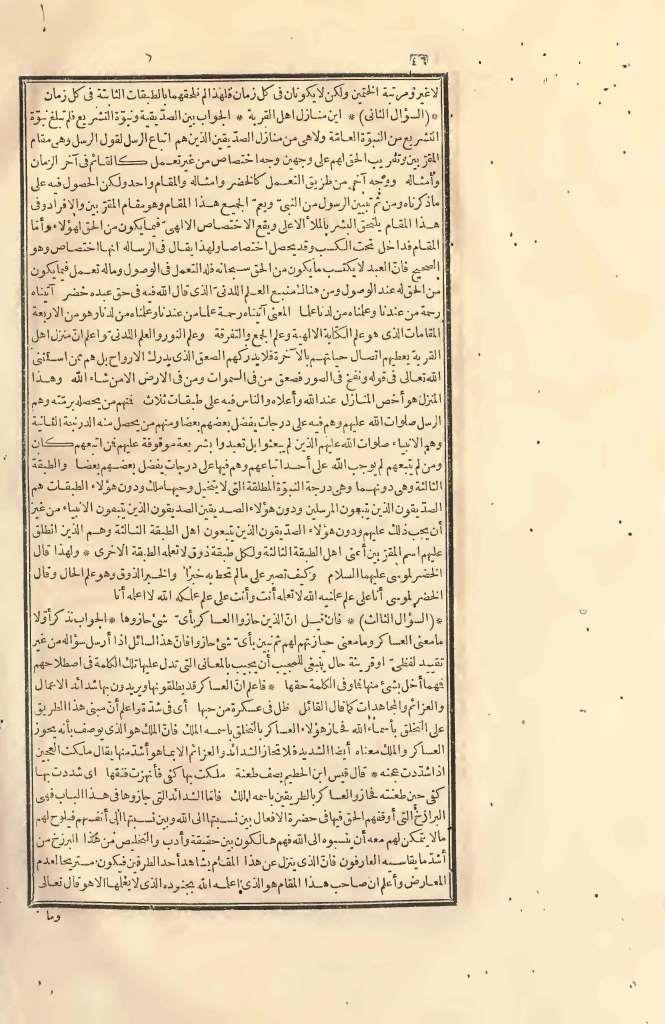 ٤٦
لا غير ومرتبة الختمين ولكن لا يكونان فى كل زمان فلهذا لم نلحقهما بالطبقات الثابتة فى كل زمان
* (السؤال الثانى) * اين منازل اهل القربة * الجواب بين الصدّيقية ونبوّة التشريع فلم تبلغ نبوّة
التشريع من النبوّة العامّة ولا هى من منازل الصدّيقين الذين هم اتباع الرسل لقول الرسل وهى مقام
المقرّبين وتقريب الحق لهم على وجهين وجه اختصاص من غير تعمل كالقائم فى آخر الزمان
وأمثاله ووجه آخر من طريق التعمل كالخضر وامثاله والمقام واحد ولكن الحصول فيه على
ما ذكرناه ومن ثم تبيين الرسول من النبىّ ويعمّ الجميع هذا المقام وهو مقام المقرّبين والافراد وفى
هذا المقام يلتحق البشر بالملأ الاعلى ويقع الاختصاص الالهىّ فيما يكون من الحق لهؤلاء وأمّا
المقام فداخل تحت الكسب وقد يحصل اختصاصا ولهذا يقال فى الرسالة انها اختصاص وهو
الصحيح فانّ العبد لا يكتسب ما يكون من الحق سبحانه فله التعمل فى الوصول وماله تعمل فيما يكون
من الحق له عند الوصول ومن هنالك منبع العلم اللدنىّ الذى قال الله فيه فى حق عبده خضر آتيناه
رحمة من عندنا وعلمناه من لدنا علما المعنى آتيناه رحمة علما من عندنا وعلمناه من لدنا وهو من الاربعة
المقامات الذى هو علم الكتابة الالهية وعلم الجمع والتفرقة وعلم النور والعلم اللدنىّ واعلم انّ منزل اهل
القربة يعطيهم اتصال حياتهم بالآخرة فلا يدركهم الصعق الذى يدرك الارواح بل هم ممن استثنى
الله تعالى فى قوله ونفخ فى الصور فصعق من فى السموات ومن فى الارض الا من شاء الله وهذا
المنزل هو أخص المنازل عند الله وأعلاه والناس فيه على طبقات ثلاث فمنهم من يحصله برمّته وهم
الرسل صلوات الله عليهم وهم فيه على درجات يفضل بعضهم بعضا ومنهم من يحصل منه الدرجة الثانية
وهم الانبياء صلوات الله عليهم الذين لم يبعثوا بل تعبدوا بشريعة موقوفة عليهم فمن اتبعهم كان
ومن لم يتبعهم لم يوجب الله على أحد اتباعهم وهم فيها على درجات يفضل بعضهم بعضا والطبقة
الثالثة وهى دونهما وهى درجة النبوّة المطلقة التى لا يتخلل وحيها ملك ودون هؤلاء الطبقات هم
الصدّيقون الذين يتبعون المرسلين ودون هؤلاء الصديقين الصديقون الذين يتبعون الانبياء من غير
أن يجب ذلك عليهم ودون هؤلاء الصدّيقون الذين يتبعون اهل الطبقة الثالثة وهم الذين انطلق
عليهم اسم المقرّبين أعنى اهل الطبقة الثالثة ولكل طبقة ذوق لا تعلمه الطبقة الاخرى * ولهذا قال
الخضر لموسى عليهما السلام وكيف تصبر على ما لم تحط به خبرا والخبر الذوق وهو علم الحال وقال
الخضر لموسى أنا على علم علمنيه الله لا تعلمه أنت وأنت على علم علمكه الله لا اعلمه أنا
* (السؤال الثالث) * فان قيل انّ الذين حازوا العساكر بأىّ شئ حازوها * الجواب نذكر أوّلا
ما معنى العساكر وما معنى حيازتهم لهم ثم نبين بأىّ شئ حازوا فانّ هذا السائل اذا أرسل سؤاله من غير
تقييد لفظىّ او قرينة حال ينبغى للمجيب أن يجيب بالمعانى التى تدل عليها تلك الكلمة فى اصطلاحهم
فمهما أخل بشئ منها فما وفى الكلمة حقها * فاعلم انّ العساكر قد يطلقونها ويريدون بها شدائد الاعمال
والعزائم والمجاهدات كما قال القائل ظل فى عسكرة من حبها أى فى شدّة واعلم أنّ مبنى هذا الطريق
على التخلق بأسماء الله فحاز هؤلاء العساكر بالتخلق باسمه الملك فانّ الملك هو الذى يوصف بأنه يحوز
العساكر والملك معناه أيضا الشديد فلا تحاز الشدائد والعزائم الا بما هو أشدّ منها يقال ملكت العجين
اذا شدّدت عجنه * قال قيس ابن الحطيم يصف طعنة ملكت بها كفى فأنهرت فتقها اى شددت بها
كفى حين طعنته فحازوا العساكر بالطريقين باسمه الملك فامّا الشدائد التى حازوها فى هذا الباب فهى
البرازخ التى أوقفهم الحق فيها فى حضرة الافعال بين نسبتها الى الله وبين نسبتها الى أنفسهم فيلوح لهم
ما لا يتمكن لهم معه أن ينسبوه الى الله فهم هالكون بين حقيقة وأدب والتخلص من هذا البرزخ من
أشدّ ما يقاسيه العارفون فانّ الذى ينزل عن هذا المقام يشاهد أحد الطرفين فيكون مستريحا لعدم
المعارض وأعلم ان صاحب هذا المقام هو الذى اعلمه الله بجنوده الذى لا يعلمها الا هو قال تعالى
وما